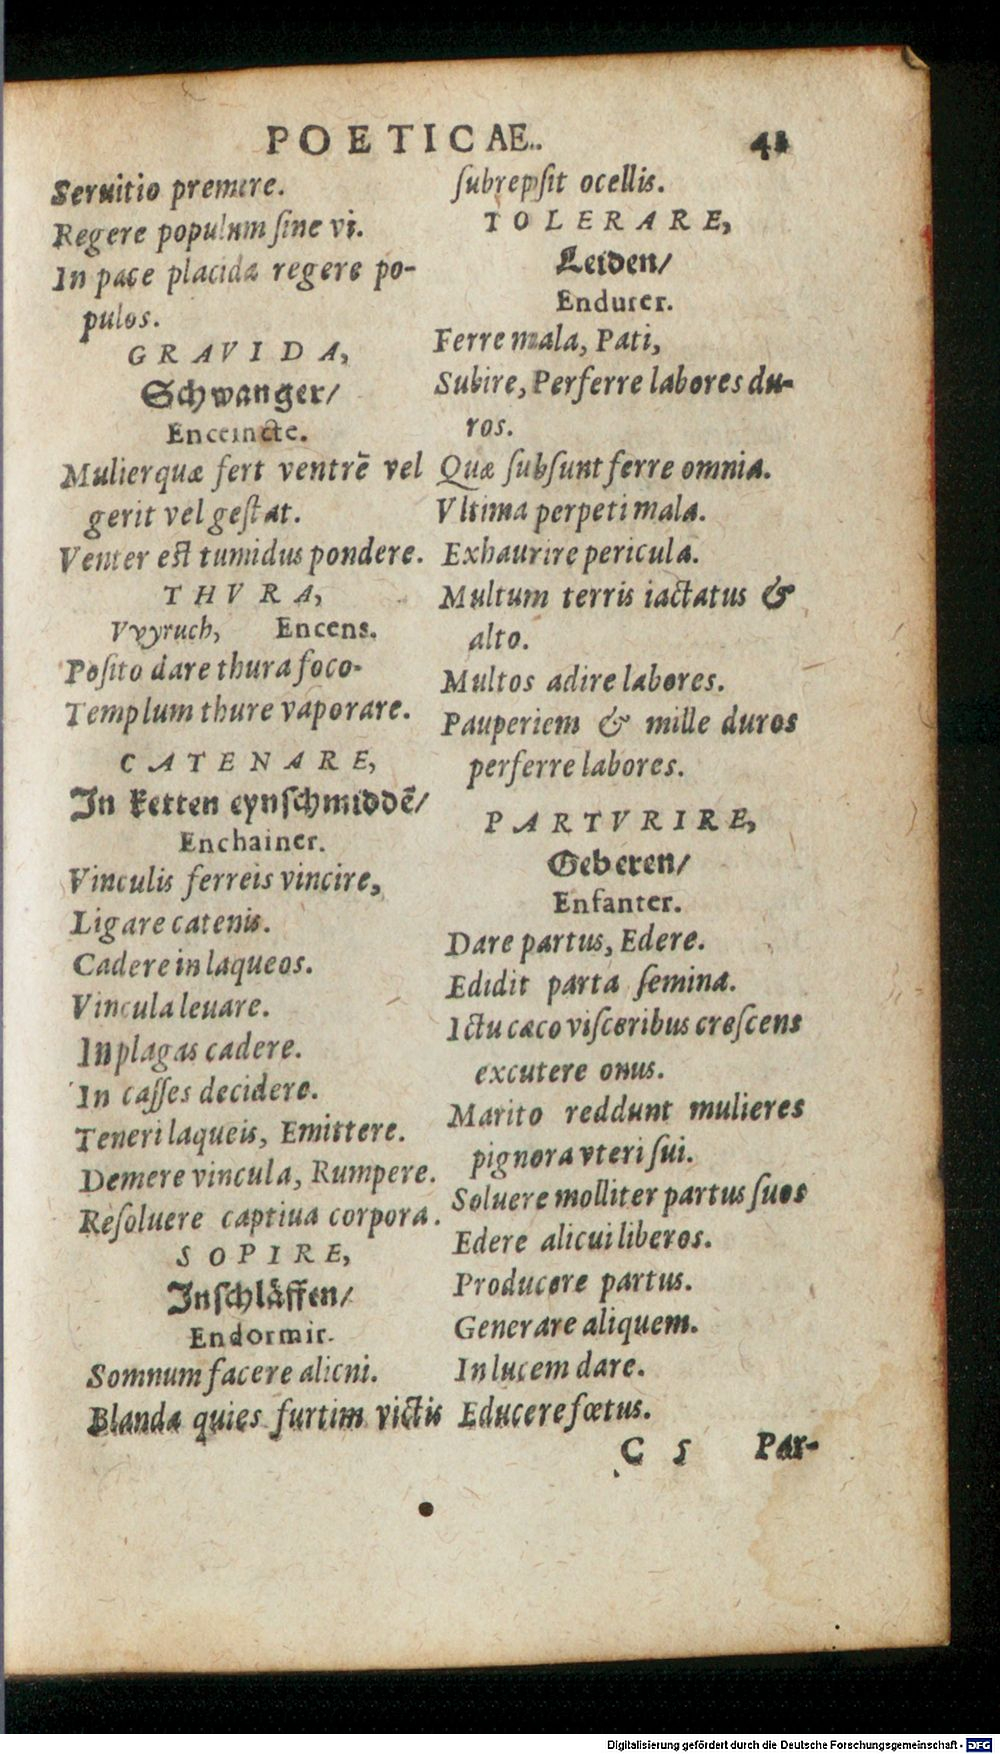 POETICAE.
41
Seruitio premere.
Regere populum ſine vi.
In pace placida regere po-
pulos.
GRAVIDA,
Schwanger/
Enceincte.
Mulier quæ fert ventrē vel
gerit vel geſtat.
Venter eſt tumidus pondere.
THVRA,
Vvyruch, Encens.
Poſito dare thura foco.
Templum thure vaporare.
CATENARE,
In ketten eynſchmiddē/
Enchainer.
Vinculis ferreis vincire,
Ligare catenis.
Cadere in laqueos.
Vincula leuare.
In plagas cadere.
In caſſes decidere.
Teneri laqueis, Emittere.
Demere vincula, Rumpere.
Reſoluere captiua corpora.
SOPIRE,
Inſchläffen/
Endormir.
Somnum facere alicni.
Blanda quies furtim victis
ſubrepſit ocellis.
TOLERARE,
Leiden/
Endurer.
Ferre mala, Pati,
Subire, Perferre labores du-
ros.
Quæ ſubſunt ferre omnia.
Vltima perpeti mala.
Exhaurire pericula.
Multum terris iactatus &
alto.
Multos adire labores.
Pauperiem & mille duros
perferre labores.
PARTVRIRE,
Geberen/
Enfanter.
Dare partus, Edere.
Edidit parta ſemina.
Ictu cæco viſceribus creſcens
excutere onus.
Marito reddunt mulieres
pignora vteri ſui.
Soluere molliter partus ſuos
Edere alicui liberos.
Producere partus.
Generare aliquem.
In lucem dare.
Educere fœtus.
C 5 Par-
Digitalisierung gefördert durch die Deutsche Forschungsgemeinschaft - DFG